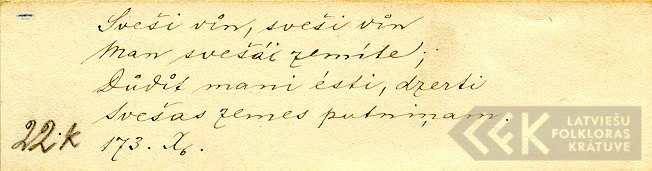 Sveši vin, sveši vin
Man svešâi zemîte;
Důdît mani ésti, dzerti
Svešas zemes putniņam.
22.k 173. X₆.
LATVIEŠU
FOLKLORAS
KRĀTUVE